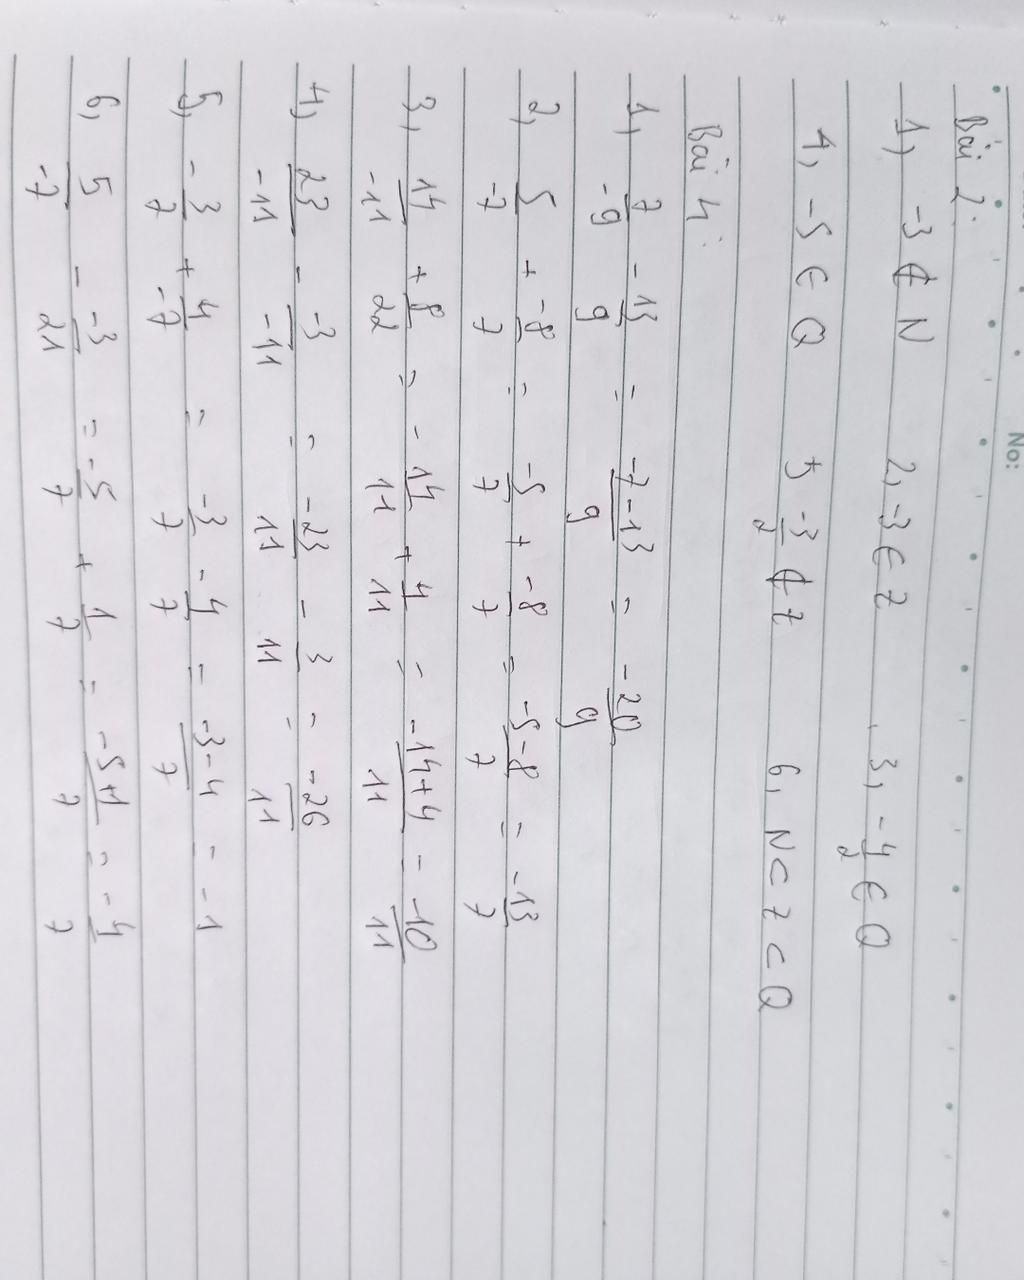 No:
Bài 2:
1, -3 ∉ N 2, -3 ∈ Z 3, -4/2 ∈ Q
4, -5 ∈ Q 5 -3/2 ∉ Z 6, N ⊂ Z ⊂ Q
Bài 4:
1, 7/-9 - 13/9 = -7-13/9 = -20/9
2, 5/-7 + -8/7 = -5/7 + -8/7 = -5-8/7 = -13/7
3, 14/-11 + 8/22 = -14/11 + 4/11 = -14+4/11 = -10/11
4, 23/-11 - -3/-11 = -23/11 - 3/11 = -26/11
5, -3/7 + 4/-7 = -3/7 - 4/7 = -3-4/7 = -1
6, 5/-7 - -3/21 = -5/7 + 1/7 = -5+1/7 = -4/7